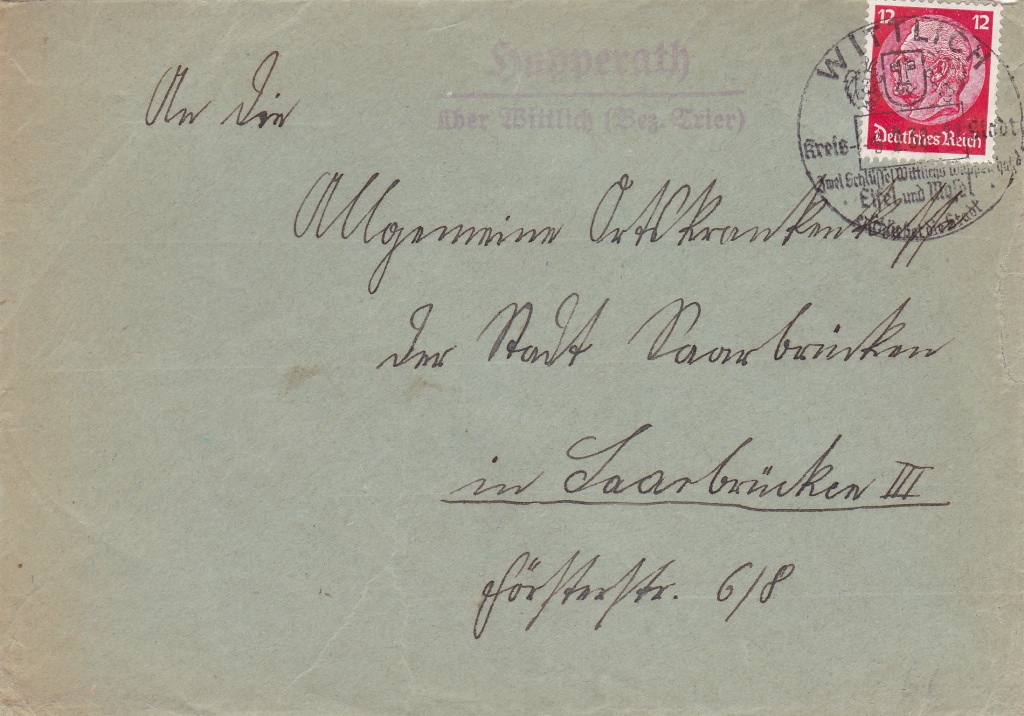 Hupperath
über Wittlich (Bez. Trier)
12 12
Deutsches Reich
WITTLICH
Kreis- Stadt
Zwei Schlüssel Wittlichs Wappen hat
Eifel und Mosel
die Stadt
An die
Allgemeine Ortskrankenk
der Stadt Saarbrücken
in Saarbrücken III
Försterstr. 6/8